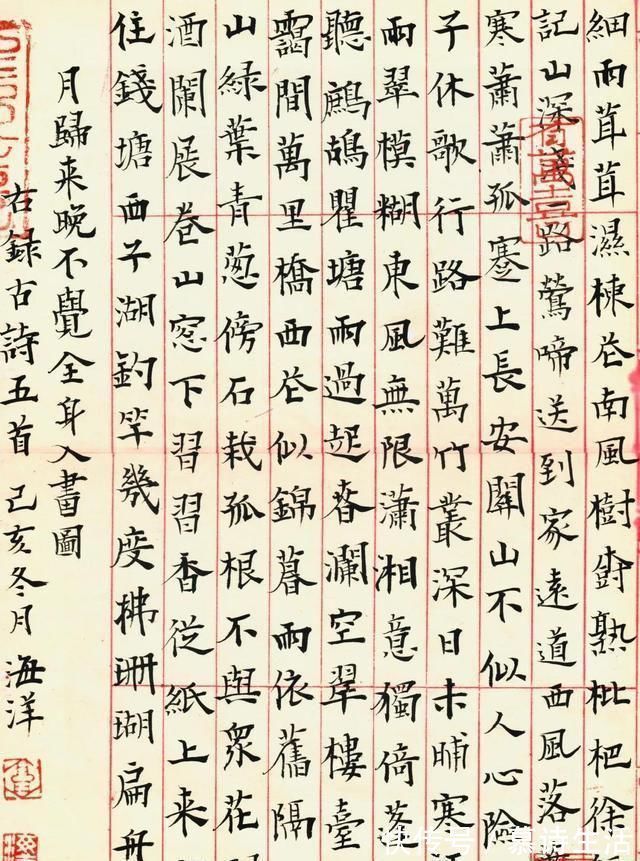 細雨茸茸濕楝花南風樹樹熟枇杷徐
記山深淺一路鶯啼送到家遠道西風落
寒蕭蕭孤蹇上長安關山不似人心險
子休歌行路難萬竹叢深日未晡寒
雨翠模糊東風無限瀟湘意獨倚
聽鷓鴣瞿塘雨過起春瀾空翠樓臺
靄間萬里橋西花似錦暮雨依舊隔
山綠葉青葱傍石栽孤根不與眾花
酒闌展卷山窓下習習香從紙上來
住錢塘西子湖釣竿幾度拂珊瑚扁舟
月歸来晚不覺全身入畫圖
右録古詩五首 己亥冬月 海洋
快传号/慕诗生活